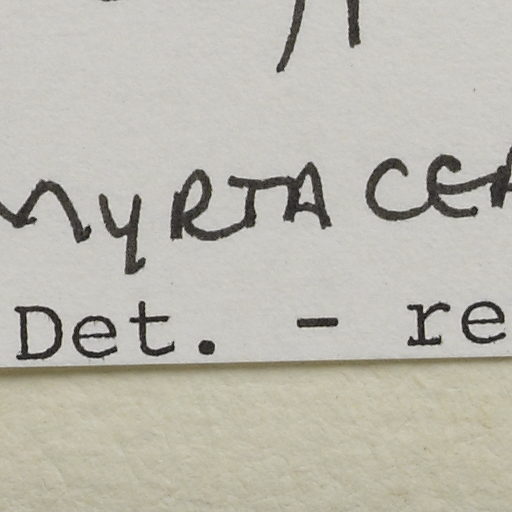 MYRTACEA
Det. - re